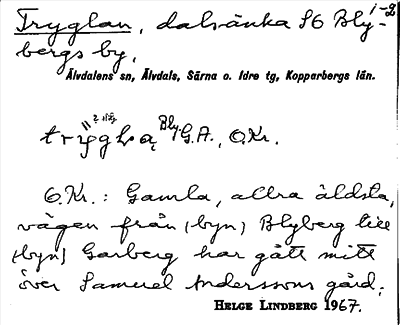 1-2
Tryglan, dalsänka SO Bly-
bergs by.
Älvdalens sn, Älvdals, Särna o. Idre tg, Kopparbergs län.
Bly. G.A., O.Kr.
O.Kr.: Gamla, allra äldsta,
vägen från (byn) Blyberg till
(byn) Garberg har gått mitt
över Samuel Anderssons gård.
HELGE LINDBERG 1967.